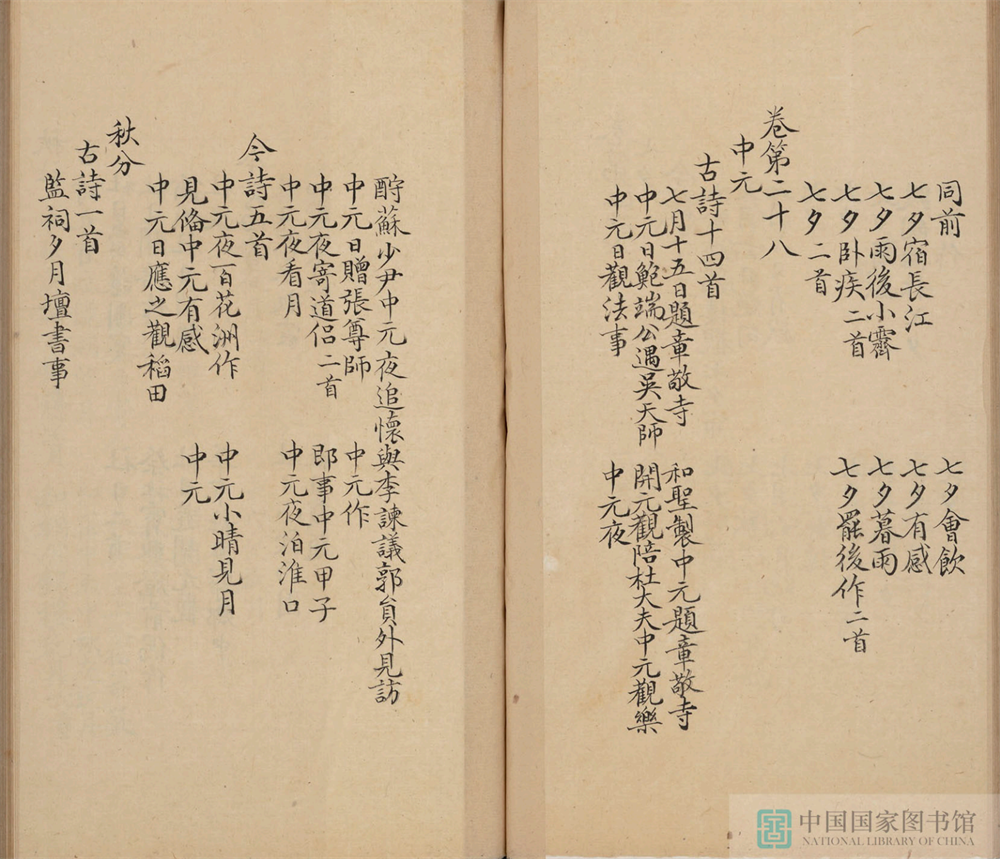 同前 七夕會飲
七夕宿長江 七夕有感
七夕雨後小霽 七夕暮雨
七夕卧疾二首 七夕罷後作二首
七夕二首
卷第二十八
中元
古詩十四首
七月十五日題章敬寺 和聖製中元題章敬寺
中元日鮑端公遇吳天師 開元觀陪杜大夫中元觀樂
中元日觀法事 中元夜
酧蘇少尹中元夜追懷與李諫議郭貟外見訪
中元日贈張尊師 中元作
中元夜寄道侣二首 即事中元甲子
中元夜看月 中元夜泊淮口
今詩五首
中元夜百花洲作 中元小晴見月
見俻中元有感 中元
中元日應之觀稻田
秋分
古詩一首
監祠夕月壇書事
中国国家图书馆
NATIONAL LIBRARY OF CHINA